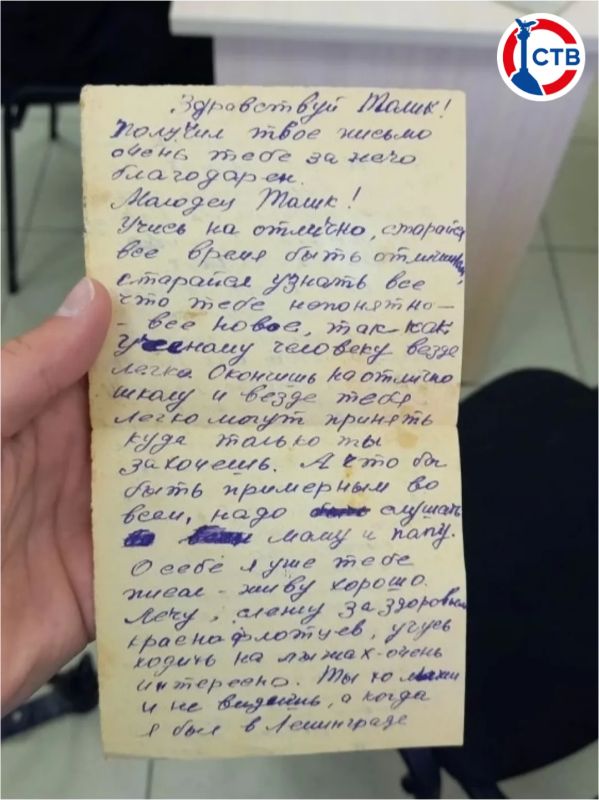 СТВ
Здравствуй Толик!
Получил твое письмо
очень тебе за него
благодарен.
Молодец Толик!
Учись на отлично, старайся
все время быть отличником,
старайся узнать все
что тебе непонятно –
– все новое, так как
ученому человеку везде
легко. Окончишь на отлично
школу и везде тебя
легко могут принять
куда только ты
захочешь. А что бы
быть примерным во
всем, надо слушать
маму и папу.
О себе я уже тебе
писал – живу хорошо.
Лечу, слежу за здоровьем
краснофлотцев, учусь
ходить на лыжах – очень
интересно. Ты то лыжи
и не видишь, а когда
я был в Ленинграде